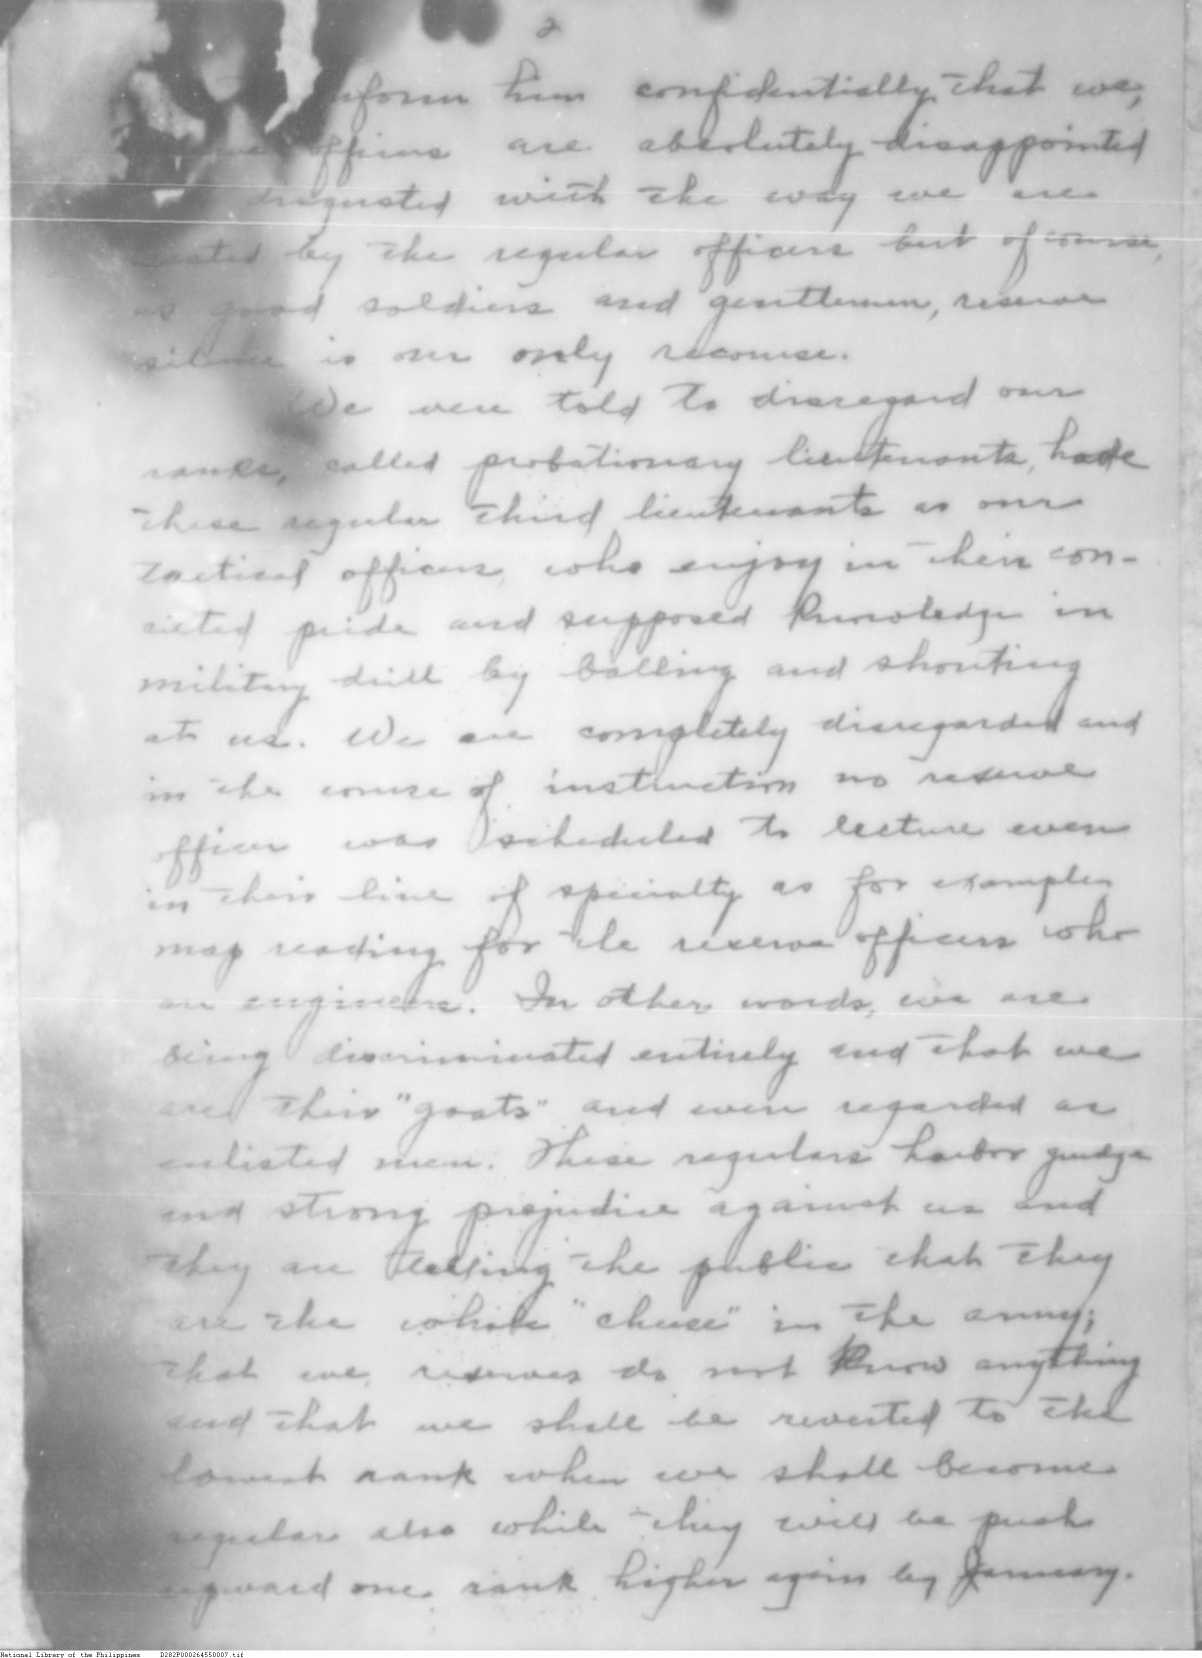 2
inform him confidentially that we,
officers are absolutely disappointed
disgusted with the way we are
treated by the regular officers but of course,
as good soldiers and gentlemen, reserve
silence is our only recourse.
We were told to disregard our
ranks, called probationary lieutenants, have
these regular third lieutenants as our
tactical officers, who enjoy in their con-
cieted pride and supposed knowledge in
military drill by balling and shouting
at us. We are completely disregarded and
in the course of instruction no reserve
officer was scheduled to lecture even
in their line of specialty as for example,
map reading for the reserve officers who
are engineers. In other words, we are
being discriminated entirely and that we
are their "goats" and even regarded as
enlisted men. These regulars harbor grudge
and strong prejudice against us and
they are telling the public that they
are the whole "cheese" in the army;
that we, reserves do not know anything
and that we shall be reverted to the
lowest rank when we shall become
regular also while they will be push
upward one rank higher again by January.
National Library of the Philippines D282P000264550007.tif